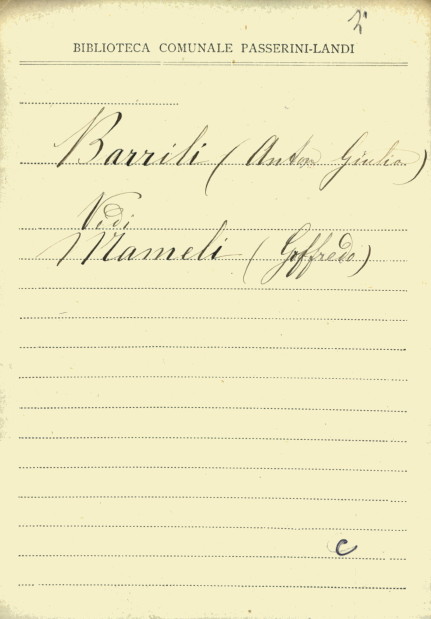 BIBLIOTECA COMUNALE PASSERINI-LANDI
Barrili (Anton Giulio)
Vedi
Mameli (Goffredo)
c